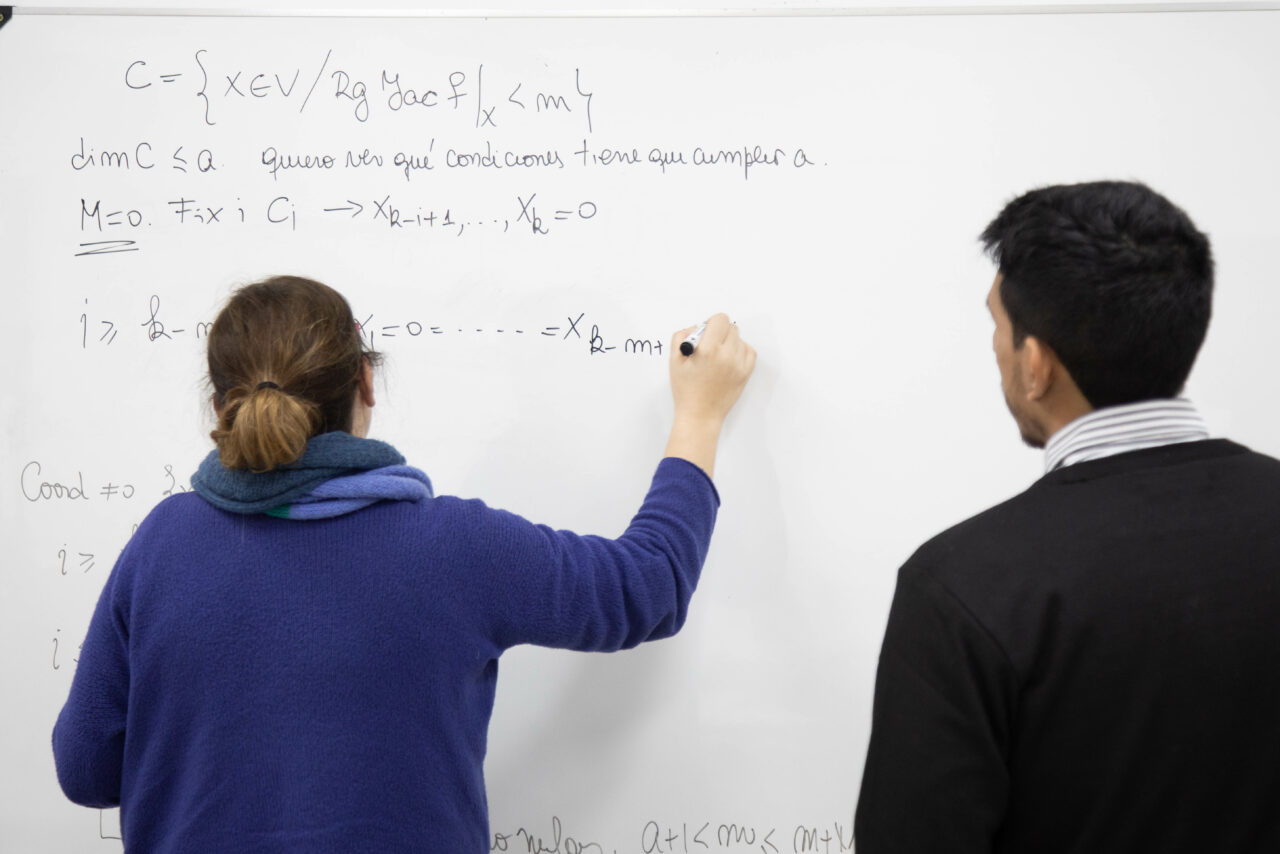 C = { X ∈ V / Rg Jac f|_X < m }
dim C ≤ a. quiero ver qué condiciones tiene que cumplir a.
M=0. Fix i C_i → X_{k-i+1}, ..., X_k = 0
i ≥ k- = 0 = ..... = X_{k-m+
Coord ≠ 0
i ≥
i
a+1 < m